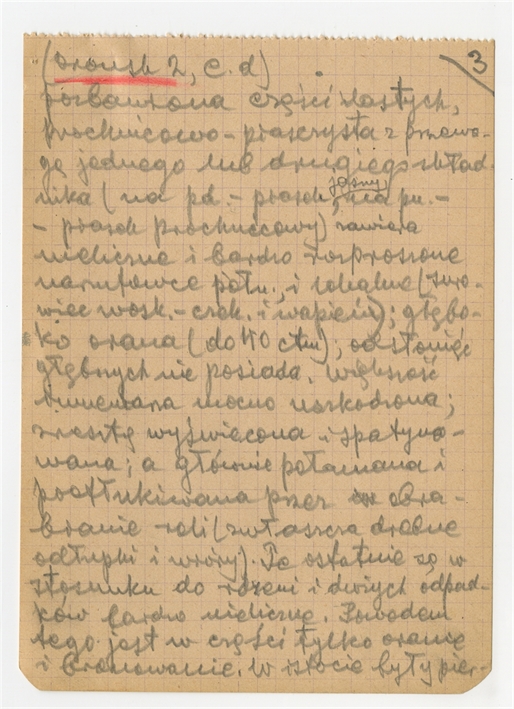 3
(Orońsk 2, c. d)
pozbawiona części stałych,
próchnicowo-piaszczysta z przewa-
gą jednego lub drugiego skład-
nika (na pd. - piasek jasny, na pn. -
- piasek próchnicowy) zawiera
nieliczne i bardzo rozproszone
narzutowce półn., i lokalne (suro-
wiec wosk. - czek. i wapień); głębo-
ko orana (do 40 ctm); odsłonięć
głębszych nie posiada. Większość
krzemienia mocno uszkodzona;
zresztą wyświecona i spatyno-
wana; a głównie połamana i
podtłukiwana przez obra-
bianie roli (zwłaszcza drobne
odłupki i wióry). Te ostatnie są w
stosunku do rdzeni i dużych odpad-
ków bardzo nieliczne. Powodem
tego jest w części tylko oranie
i bronowanie. W istocie były pier-